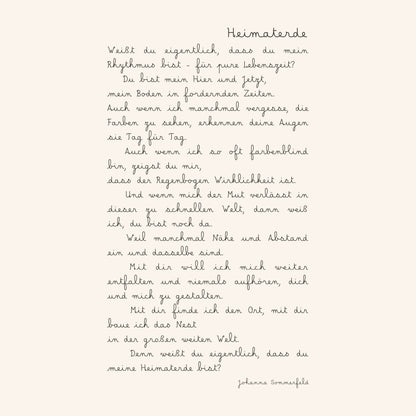 Heimaterde
Weißt du eigentlich, dass du mein
Rhythmus bist - für pure Lebenszeit?
Du bist mein Hier und Jetzt,
mein Boden in fordernden Zeiten.
Auch wenn ich manchmal vergesse, die
Farben zu sehen, erkennen deine Augen
sie Tag für Tag.
Auch wenn ich so oft farbenblind
bin, zeigst du mir,
dass der Regenbogen Wirklichkeit ist.
Und wenn mich der Mut verlässt in
dieser zu schnellen Welt, dann weiß
ich, du bist noch da.
Weil manchmal Nähe und Abstand
ein und dasselbe sind.
Mit dir will ich mich weiter
entfalten und niemals aufhören, dich
und mich zu gestalten.
Mit dir finde ich den Ort, mit dir
baue ich das Nest
in der großen weiten Welt.
Denn weißt du eigentlich, dass du
meine Heimaterde bist?
Johanna Sommerfeld